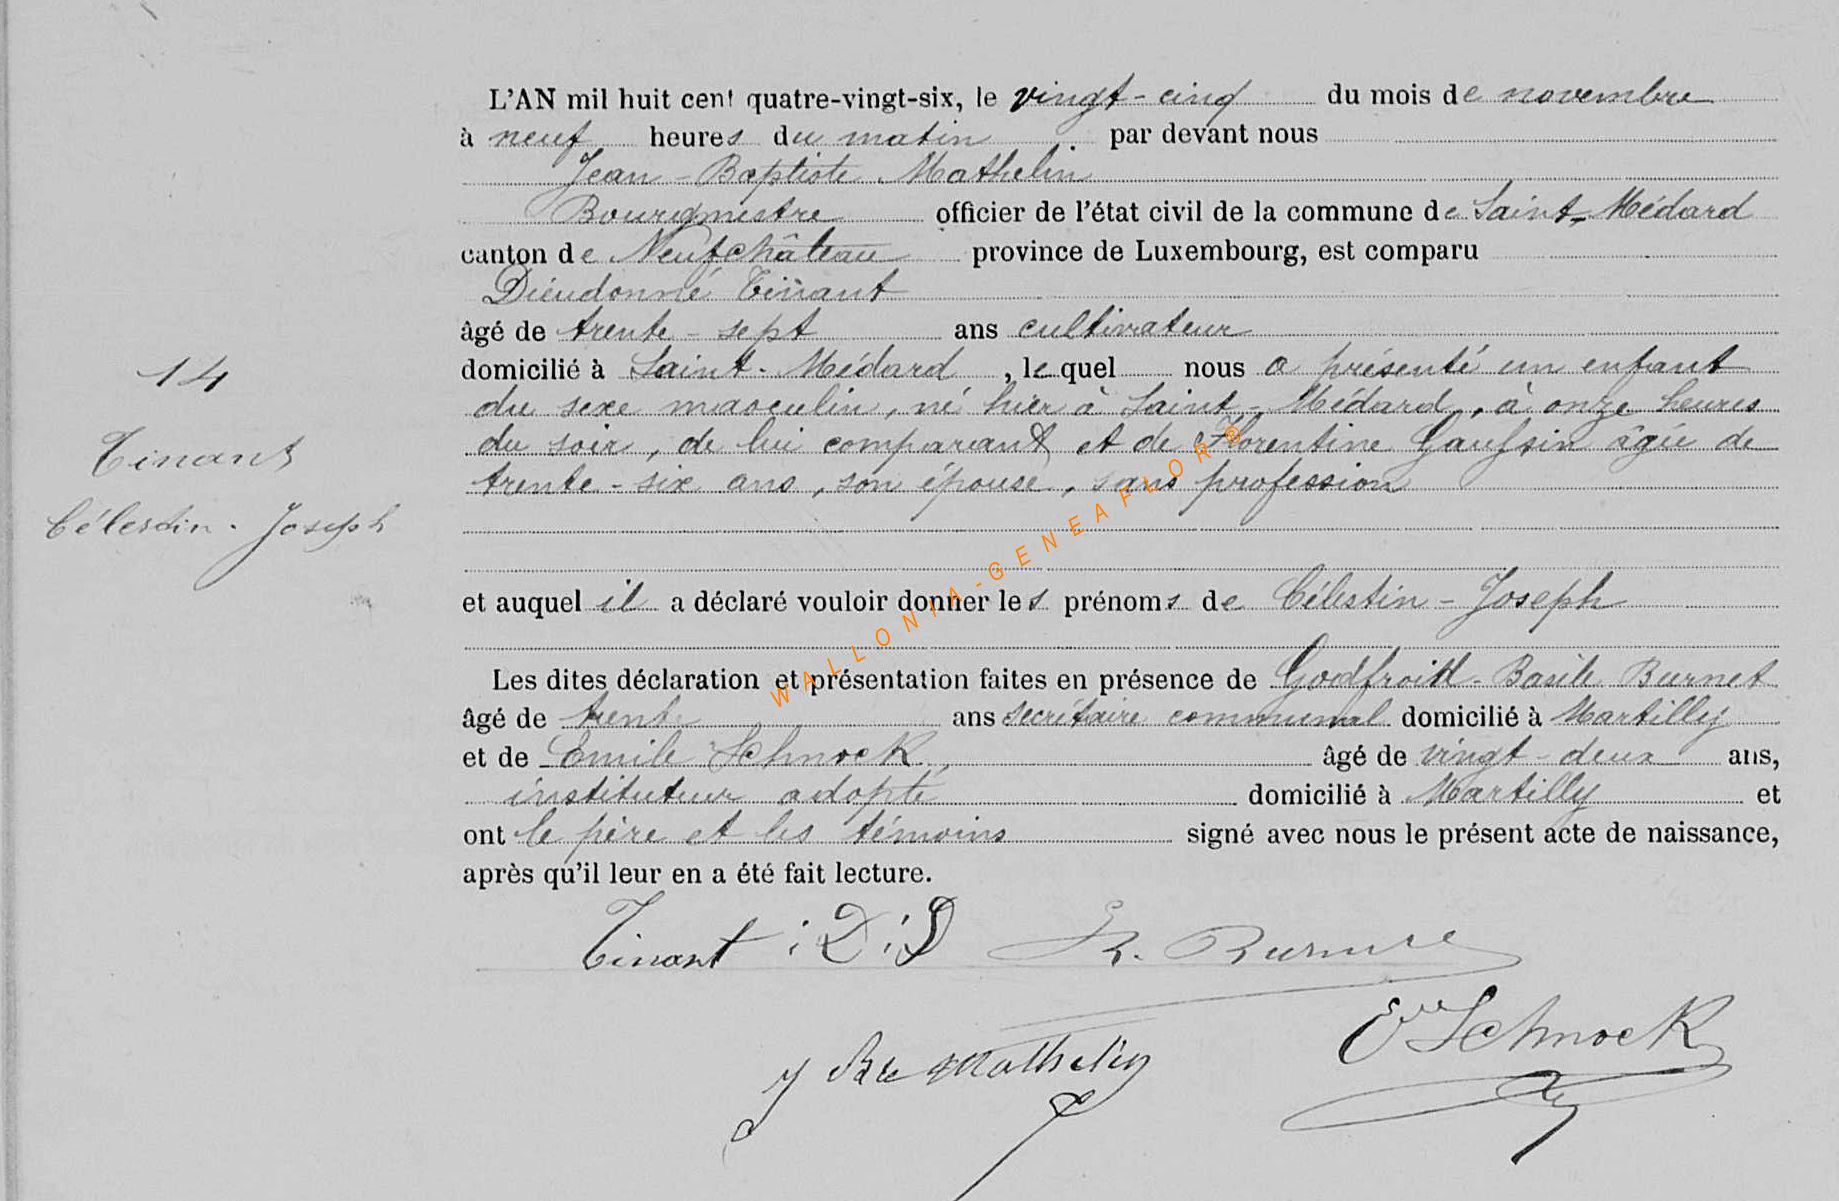 L'AN mil huit cent quatre-vingt-six, le vingt-cinq du mois de novembre
à neuf heures du matin par devant nous
Jean-Baptiste Mathelin
Bourgmestre officier de l'état civil de la commune de Saint-Médard
canton de Neufchâteau province de Luxembourg, est comparu
Dieudonné Tinant
âgé de trente-sept ans cultivateur
14
domicilié à Saint-Médard, lequel nous a présenté un enfant
du sexe masculin, né hier à Saint-Médard, à onze heures
du soir, de lui comparant et de Florentine âgée de
Tinant
trente-six ans, son épouse, sans profession
Célestin-Joseph
et auquel il a déclaré vouloir donner les prénoms de Célestin-Joseph
Les dites déclaration et présentation faites en présence de Godfroid-Basile Burnet
âgé de trente ans secrétaire communal domicilié à Martilly
et de Emile Schnock, âgé de vingt-deux ans,
instituteur adopté domicilié à Martilly et
ont le père et les témoins signé avec nous le présent acte de naissance,
après qu'il leur en a été fait lecture.
Tinant : D : D
J Bte Mathelin
Schnock
WALLONIA-GENEAFLOR®